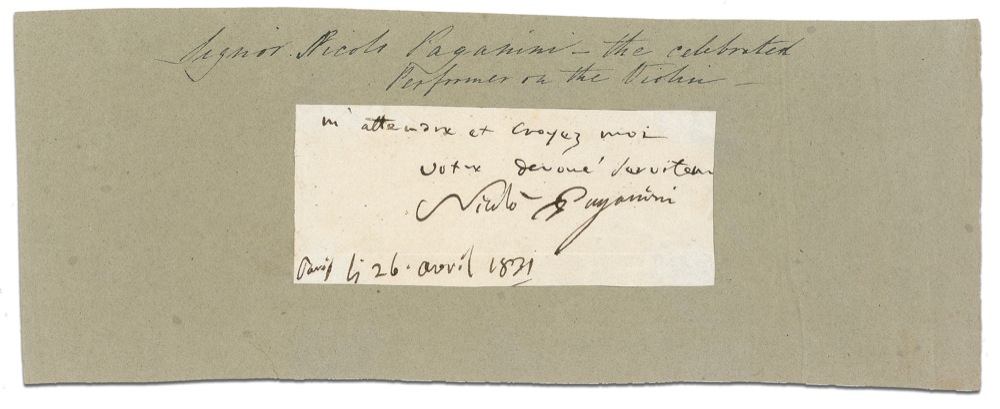 Signor Nicolo Paganini – the celebrated
Performer on the Violin –
m'attendre et croyez moi
votre devoué serviteur
Nicolò Paganini
Paris li 26. avril 1831